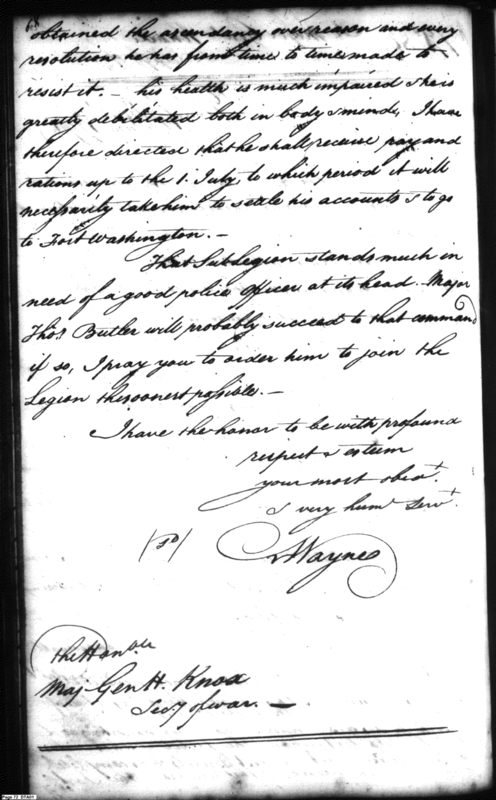 obtained the ascendancy over reason and every
resolution he has from time to time made to
resist it. – his health is much impaired & he is
greatly debilitated both in body & mind, I have
therefore directed that he shall receive pay and
rations up to the 1. July, to which period it will
necessarily take him to settle his accounts & to go
to Fort Washington. –
That Sub Legion stands much in
need of a good police officer at its head. Major
Thos Butler will probably succeed to that command
if so, I pray you to order him to join the
Legion the soonest possible. –
I have the honor to be with profound
respect & esteem
your most obed.t
& very hum.l Serv.t
/sd/
A Wayne
The Hon.ble
Maj Gen H. Knox
Secy of war. –